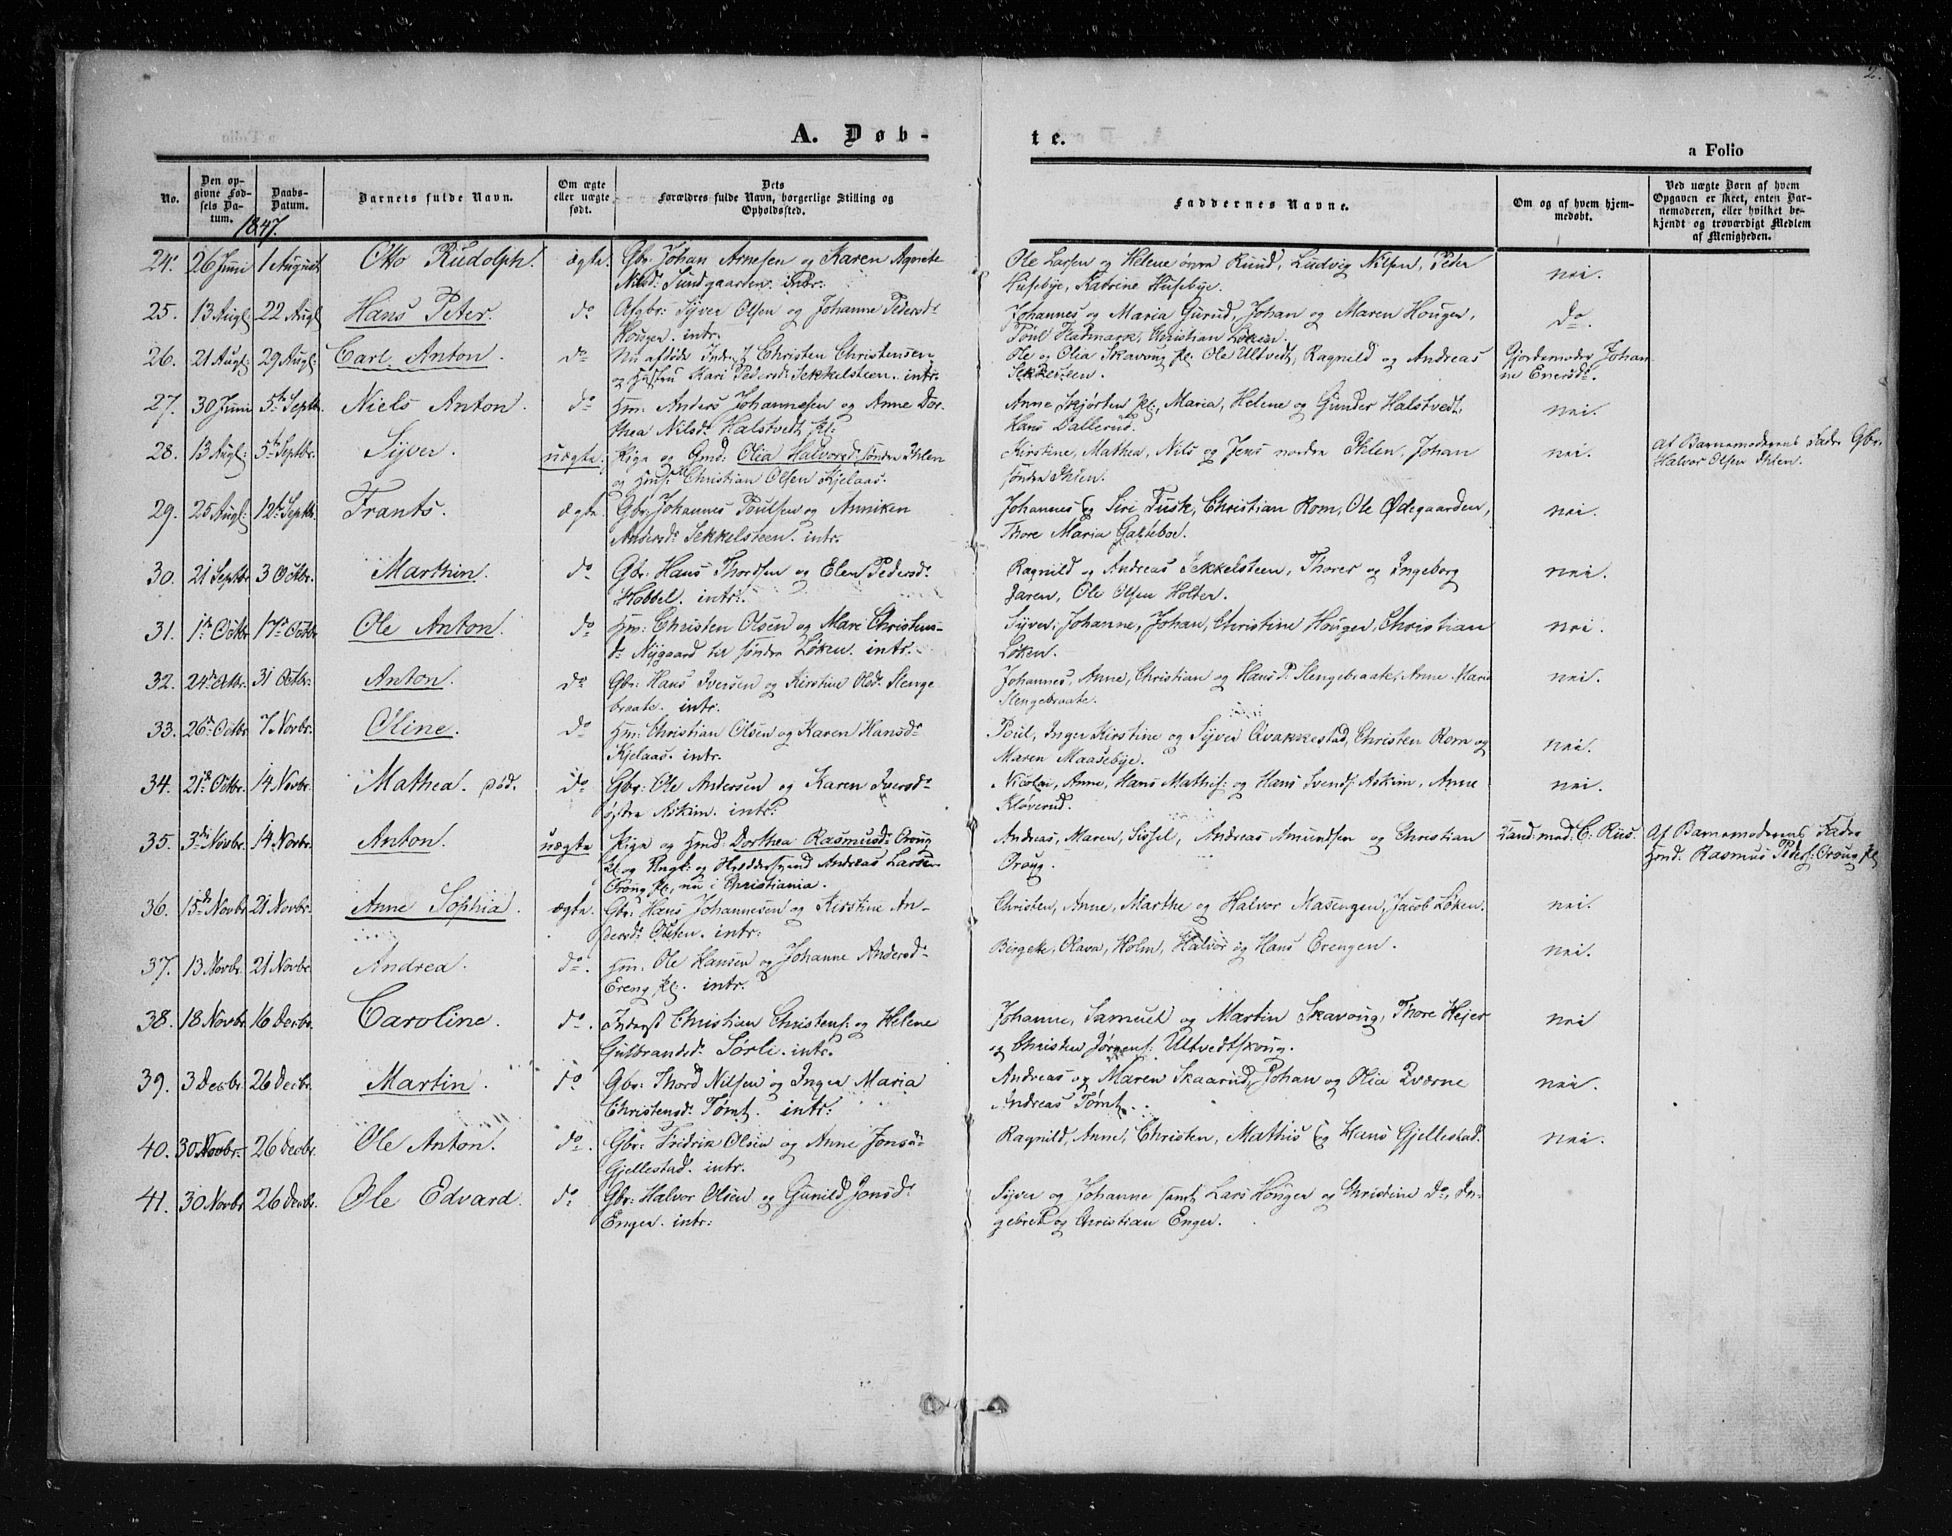 2.
A. Døb-
te.
a Folio
No.
Den opgivne Fødsels Datum.
Daabs-Datum.
Barnets fulde Navn.
Om ægte eller uægte født.
Dets Forældres fulde Navn, borgerlige Stilling og Opholdsted.
Faddernes Navne.
Om og af hvem hjemmedøbt.
Ved uægte Børn af hvem Opgaven er skeet, enten Barnemoderen, eller hvilket bekjendt og troværdigt Medlem af Menigheden.
1847.
24. 26 Juni 1 August Otto Rudolph. ægte. Gbr: Johan Arnesen og Karen Agnete Ole Larsen og Helene Rund, Ludvig Nilsen, Peder nei.
Nilsd: Sundgaarden. intr: Husebye, Katrine Husebye.
25. 13 Augl 22 Augl Hans Peter. do Afgbr: Syver Olsen og Johanne Pedersd: Johannes og Maria Gurud, Johan og Maren Hougen, do.
Hougen. intr: Poul Hadmark, Christian Løken.
26. 21 Augl: 29 Augl: Carl Anton. do Nu afdøde Inderst Christen Christensen Ole og Olia Skavoug pl. Ole Ultvedt, Ragnild og Andreas Gjordemoder Johan-
og Hustru Kari Pedersd: Sekkelsteen. intr. Sekkelsteen. ne Enersd:
27. 30 Juni 5te Septbr. Niels Anton. do Hm: Anders Johannesen og Anne Dor- Anne Skjørten pl:, Maria, Helene og Gunder Halstvedt, nei.
thea Nilsd: Halstvedt pl: Hans Dallerud.
28. 13 Augl: 5te Septbr. Syver. uægte. Piga og Gmd: Olia Halvorsd: søndre Ihlen Kirstine, Mathea, Nils og Jens nordre Ihlen, Johan nei. Af Barnemoderens Fader Gbr:
og Christian Olsen Kjelaas. søndre Ihlen. Halvor Olsen Ihlen.
29. 25 Augl: 12te Septbr. Frants. ægte. Gbr: Johannes Poulsen og Anniken Johannes og Siri Tusk, Christian Rom, Ole Ødegaarden, nei.
Andersd: Sekkelsteen. intr: Thore Maria
30. 21 Septbr. 3 Octbr. Marthin. do Gbr: Hans Thordsen og Elen Pedersd: Ragnild og Andreas Sekkelsteen, Thorer og Ingeborg nei.
Habbel. intr: Jaren, Ole Olsen Holter.
31. 1te Octbr. 17de Octbr. Ole Anton. do Hm: Christen Olsen og Mari Christens- Syver, Johanne, Johan, Christine Hougen, Christian nei.
d: Nygaard til søndre Løken. intr: Løken.
32. 24de Octbr. 31 Octbr. Anton. do Gbr: Hans Iversen og Kirstine Olsd: Slenge- Johannes, Anne, Christian og Hans P. Slengebraate, Anne Maria nei.
braate. intr: Slengebraate.
33. 26de Octbr. 7 Novbr. Oline. do Hm: Christian Olsen og Karen Hansd: Poul, Inger Kirstine og Syver Qvakkestad, Christen Rom og nei.
Kjelaas. intr: Maren Maasebye.
34. 21de Octbr. 14 Novbr. Mathea. død. do Gbr: Ole Andersen og Karen Iversd: Nicolai, Anne, Hans Mathis: og Hans Svends: Askim, Anne nei.
østre Askim. intr: Kløverud.
35. 3die Novbr. 14 Novbr. Anton. uægte Piga og Hmd: Dorthea Rasmusd: Oroug Andreas, Maren, Sissel, Andreas Amundsen og Christian Cand: med: C. Riis. Af Barnemoderens Fader
pl. og Ungk: og Andreas Larsen Oroug. Hmd. Rasmus Peders: Oroug pl
Oroug pl, nu i Christiania.
36. 15de Novbr. 21 Novbr. Anne Sophia. ægte. Gbr: Hans Johannesen og Kirstine An- Christen, Anne, Marthe og Halvor Masengen, Jacob Løken. nei.
dersd: Oksten. intr:
37. 13 Novbr. 21 Novbr. Andrea. do. Hm: Ole Hansen og Johanne Andersd: Birgette, Olava, Holm, Halvor og Hans Erengen. nei.
Ereng pl. intr.
38. 18 Novbr. 16 Decbr. Caroline. do. Inderst Christian Christens: og Helene Johanne, Samuel og Martin Skavoug, Thore Hejer nei
Gulbrandsd: Sørli. intr. og Christen Jørgens: Ultvedtskoug.
39. 3 Decbr. 26 Decbr. Martin. do Gbr: Thord Nilsen og Inger Maria Andreas og Maren Skaarud, Johan og Olia Qværne nei.
Christensd: Tømt. intr: Andreas Tømt.
40. 30 Novbr. 26 Decbr. Ole Anton. do Gbr: Fridrik Olsen og Anne Jonsd: Ragnild, Anne, Christen, Mathis og Hans Gjellestad. nei.
Gjellestad. intr.
41. 30 Novbr. 26 Decbr. Ole Edvard. do Gbr: Halvor Olsen og Gunild Jonsd: Syver og Johanne samt Lars Hougen og Christine do, In-
Enger. intr: gebret og Christian Enger.